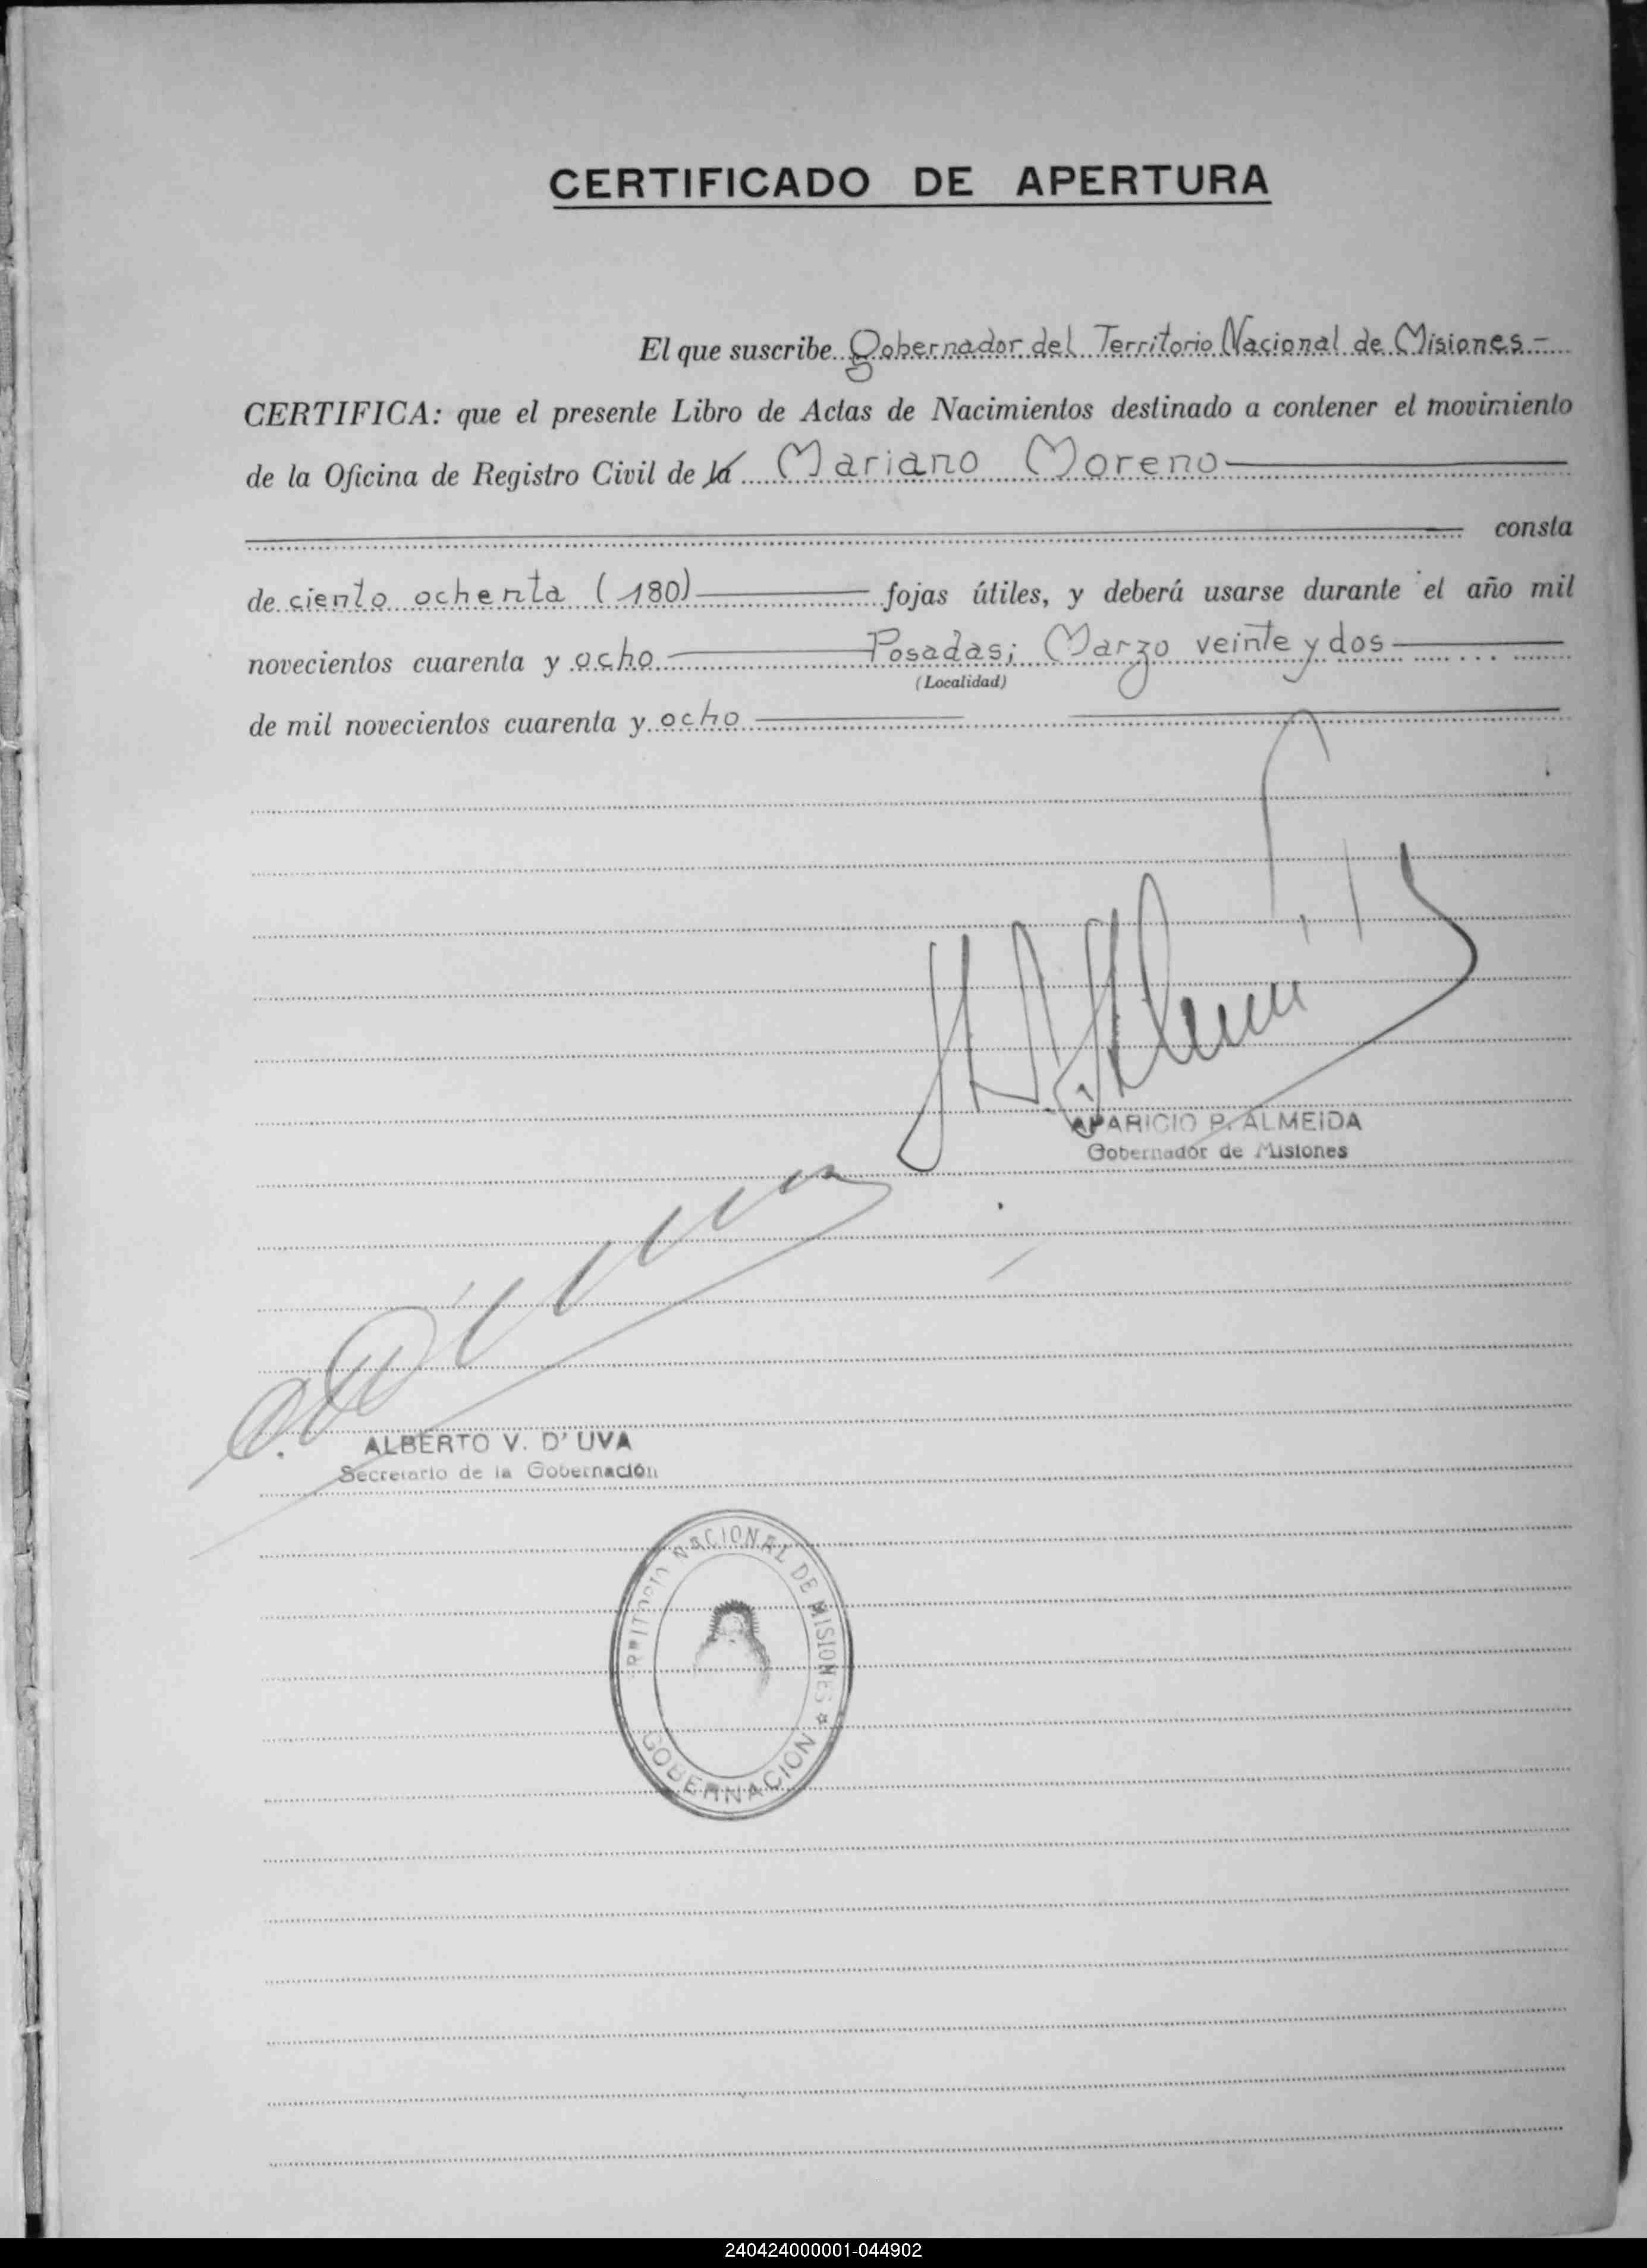 CERTIFICADO DE APERTURA
El que suscribe Gobernador del Territorio Nacional de Misiones.-
CERTIFICA: que el presente Libro de Actas de Nacimientos destinado a contener el movimiento
de la Oficina de Registro Civil de la Mariano Moreno
consta
de ciento ochenta (180) fojas útiles, y deberá usarse durante el año mil
novecientos cuarenta y ocho Posadas; Marzo veinte y dos
(Localidad)
de mil novecientos cuarenta y ocho
APARICIO P. ALMEIDA
Gobernador de Misiones
ALBERTO V. D'UVA
Secretario de la Gobernación
RRITORIO NACIONAL DE MISIONES
GOBERNACION
240424000001-044902